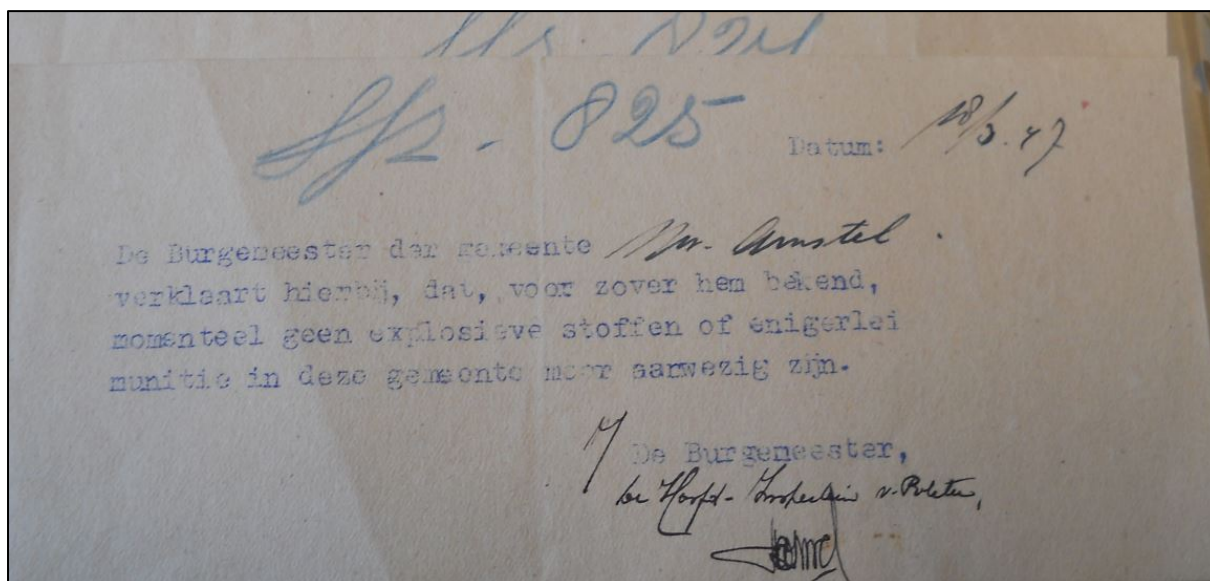 825
Datum: 18/3.47
De Burgemeester der gemeente Nr. Amstel.
verklaart hierbij, dat, voor zover hem bekend,
momenteel geen explosieve stoffen of enigerlei
munitie in deze gemeente meer aanwezig zijn.
De Burgemeester,
de Hoofd-Inspecteur v. Politie,